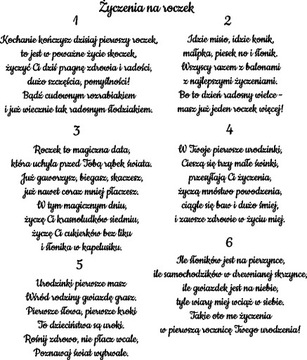 Życzenia na roczek
1
Kochanie kończysz dzisiaj pierwszy roczek,
to jest w poważne życie skoczek,
życzyć Ci dziś pragnę zdrowia i radości,
dużo szczęścia, pomyślności!
Bądź cudownym rozrabiakiem
i już wiecznie tak radosnym słodziakiem.
2
Idzie misio, idzie konik,
małpka, piesek no i słonik.
Wszyscy razem z balonami
z najlepszymi życzeniami.
Bo to dzień radosny wielce -
masz już jeden roczek więcej!
3
Roczek to magiczna data,
która uchyla przed Tobą rąbek świata.
Już gaworzysz, biegasz, skaczesz,
już nawet coraz mniej płaczesz.
W tym magicznym dniu,
życzę Ci krasnoludków siedmiu,
życzę Ci cukierków bez liku
i słonika w kapeluszu.
4
W Twoje pierwsze urodzinki,
Cieszą się trzy małe świnki,
przesyłają Ci życzenia,
życzą mnóstwo powodzenia,
ciągle się baw i dużo śmiej,
i zawsze zdrowie w życiu miej.
5
Urodzinki pierwsze masz
Wśród rodziny gwiazdę grasz.
Pierwsze słowa, pierwsze kroki
To dzieciństwa są uroki.
Rośnij zdrowo, nie płacz wcale,
Poznawaj świat wytrwale.
6
Ile słoników jest na pierzynce,
ile samochodzików w drewnianej skrzynce,
ile gwiazdek jest na niebie,
tyle wiary miej wciąż w siebie.
Takie oto me życzenia
w pierwszą rocznicę Twego urodzenia!